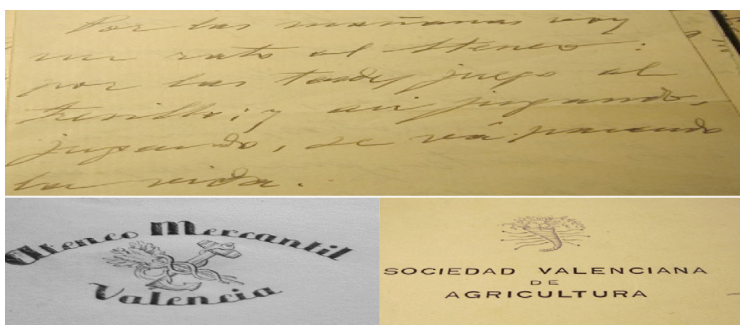 Por las mañanas voy
un rato al Ateneo:
por las tardes juego al
tresillo: y así jugando,
jugando, se vá pasando
la vida.
Ateneo Mercantil
Valencia
SOCIEDAD VALENCIANA
DE
AGRICULTURA